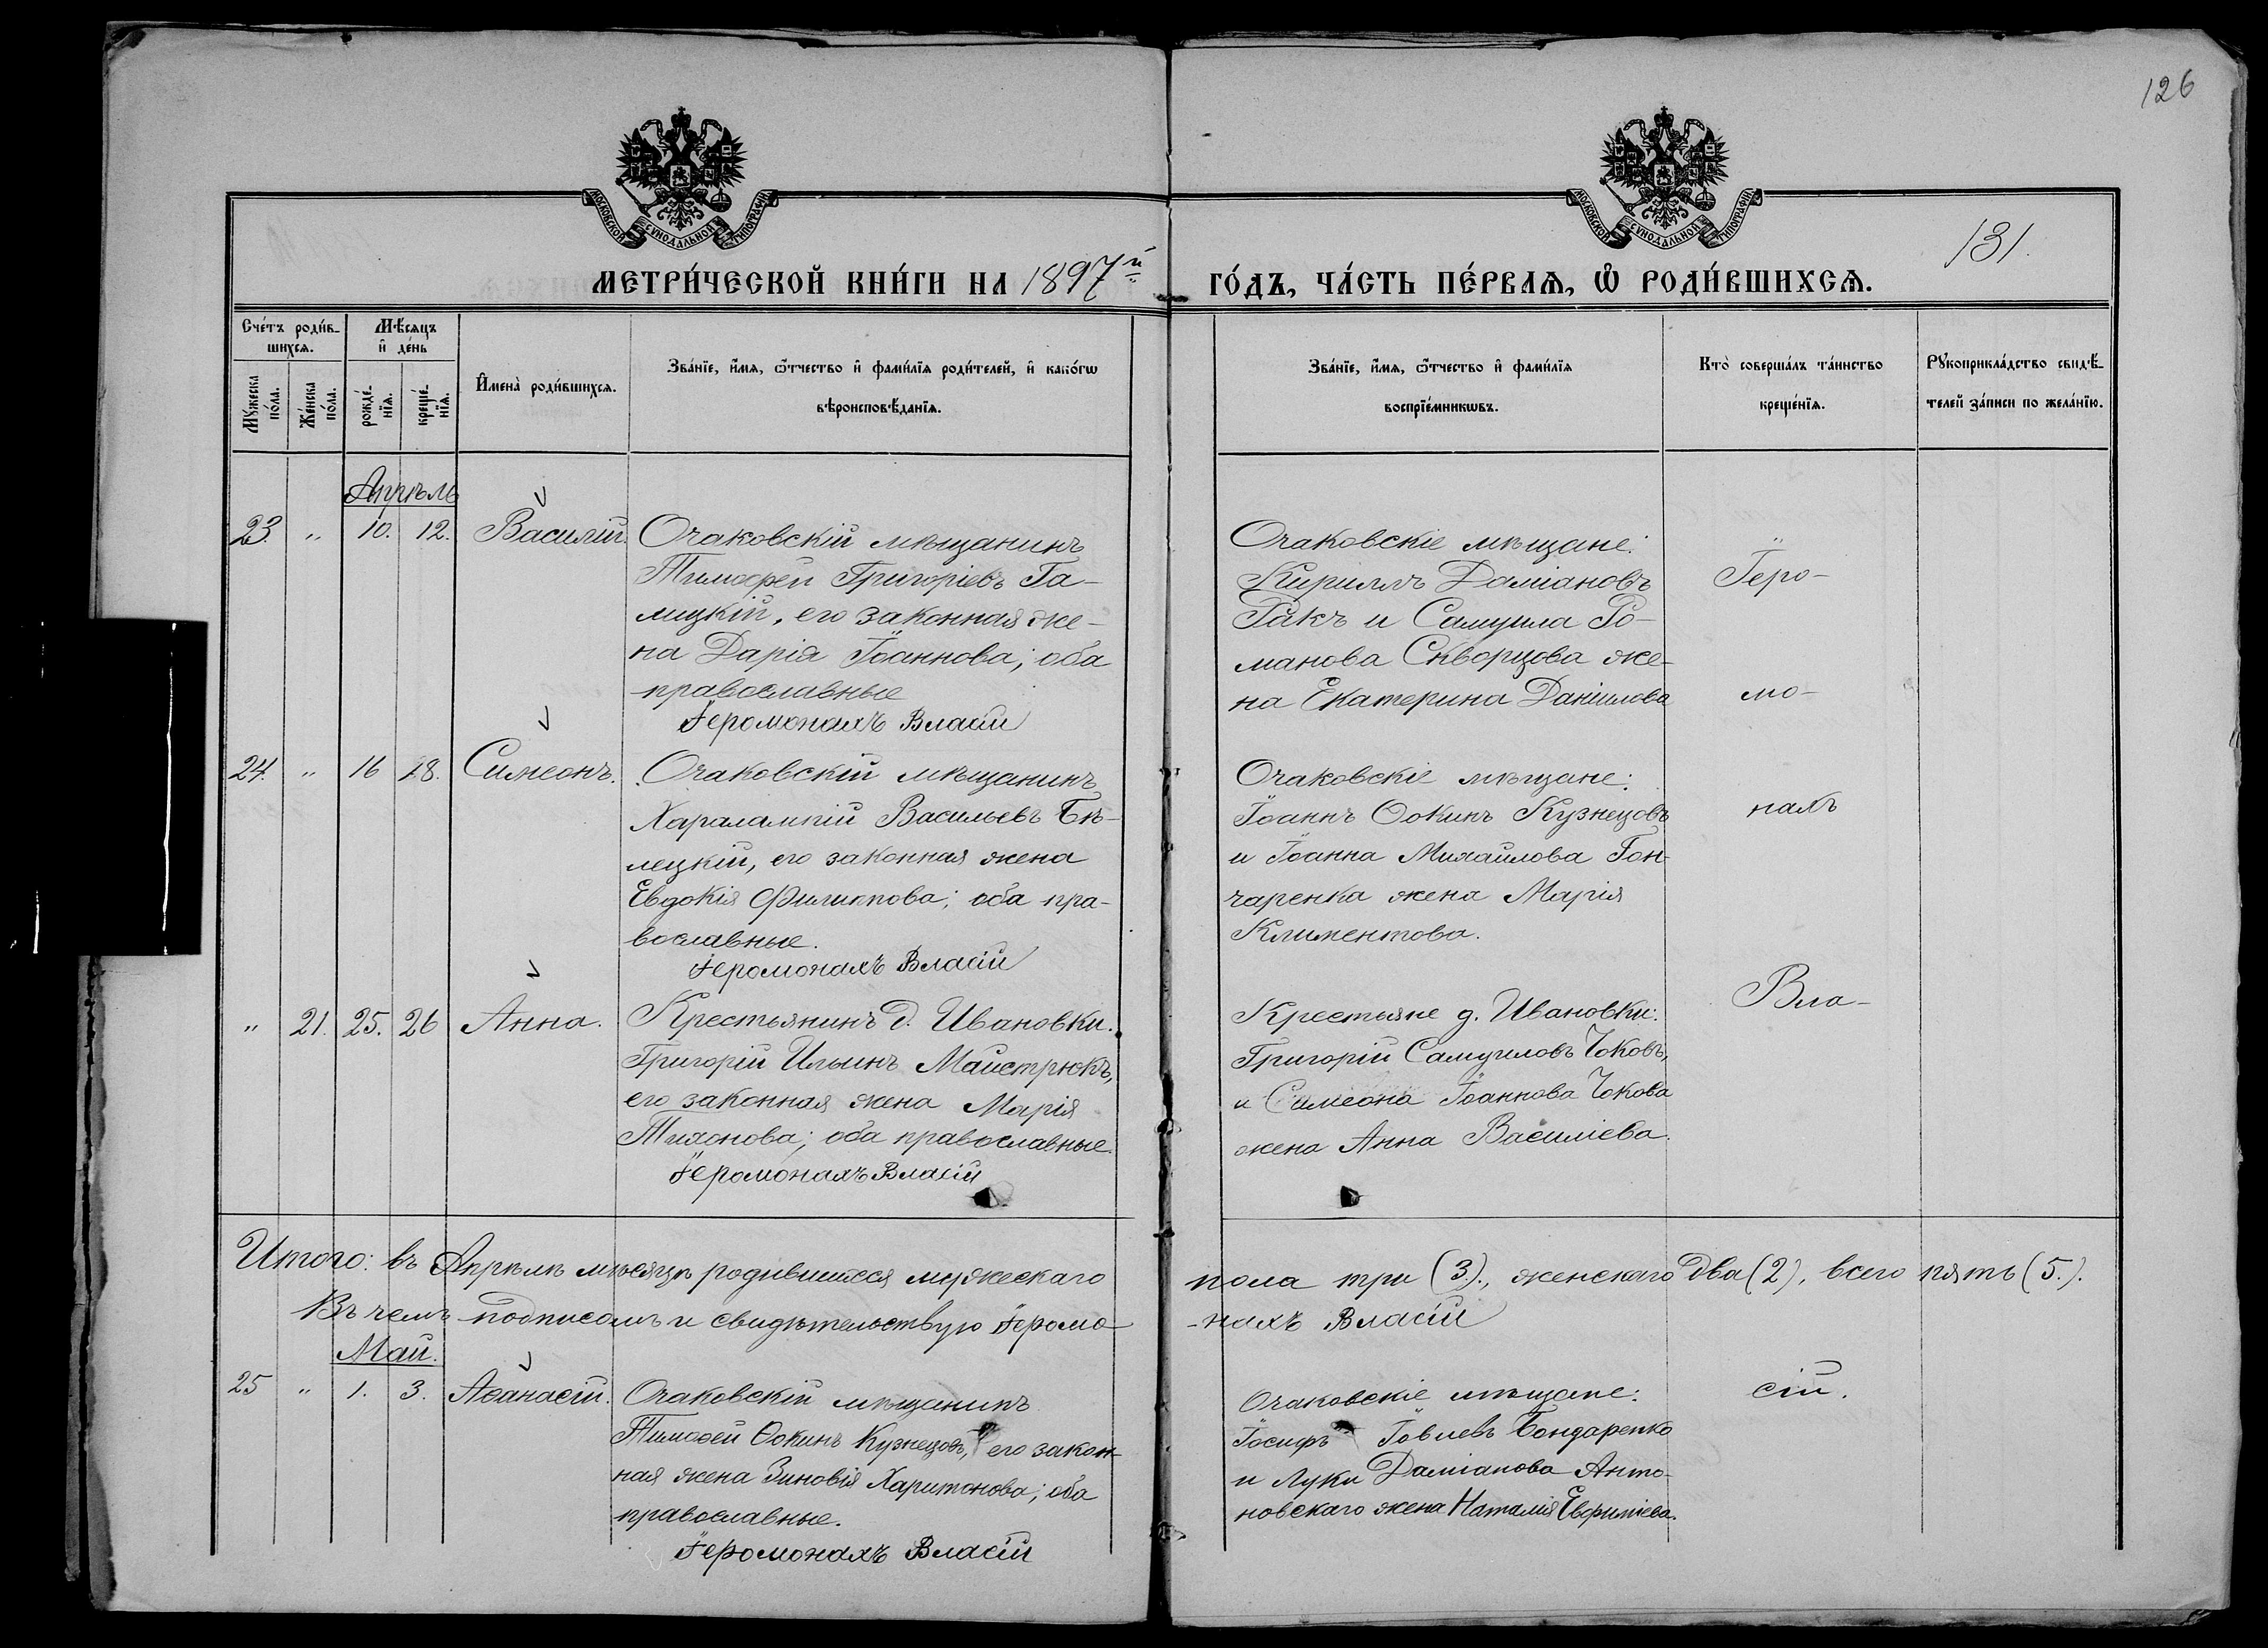 126
131.
МОСКОВСКОЙ СѴНОДАЛЬНОЙ ТИПОГРАФІИ
МОСКОВСКОЙ СѴНОДАЛЬНОЙ ТИПОГРАФІИ
МЕТРИ́ЧЕСКОЙ КНИ́ГИ НА 1897й ГО́ДЪ, ЧА́СТЬ ПЕ́РВАѦ, Ѡ҆ РОДИ́ВШИХСѦ.
Сче́тъ роди́в-
шихсѧ.
Мꙋ́жеска
по́ла.
Же́нска
по́ла.
Мѣ́сѧцъ
и҆ де́нь
рожде́-
нїѧ.
креще́-
нїѧ.
И҆мена̀ роди́вшихсѧ.
Зва́нїе, и҆́мѧ, ѻ҆́тчество и҆ фами́лїѧ роди́телей, и҆ како́гѡ
вѣроисповѣ́данїѧ.
Зва́нїе, и҆́мѧ, ѻ҆́тчество и҆ фами́лїѧ
воспрїе́мникѡвъ.
Кто̀ соверша́лъ та́инство
креще́нїѧ.
Рꙋкоприкла́дство свидѣ́-
телей за́писи по жела́нїю.
Апрѣль
23. " 10. 12. Василій.
Очаковскій мѣщанинъ
Тимофей Григоріевъ Га-
лицкій, его законная же-
на Дарія Іоаннова; оба
православные
Іеромонахъ Власій
Очаковскіе мѣщане:
Кириллъ Даміановъ
Ракъ и Самуила Ро-
манова Скворцова же-
на Екатерина Даніилова
Іеро-
мо-
24. " 16 18. Симеонъ.
Очаковскій мѣщанинъ
Харалампій Васильевъ Бѣ-
лецкій, его законная жена
Евдокія Филиппова; оба пра-
вославные.
Іеромонахъ Власій
Очаковскіе мѣщане:
Іоаннъ Ѳокинъ Кузнецовъ
и Іоанна Михайлова Гон-
чаренка жена Марія
Климентова.
нахъ
" 21. 25. 26 Анна.
Крестьянинъ д. Ивановки.
Григорій Ильинъ Майстрюкъ,
его законная жена Марія
Тихонова; оба православные.
Іеромонахъ Власій
Крестьяне д. Ивановки:
Григорій Самуиловъ Чоковъ,
и Симеона Іоаннова Чокова
жена Анна Василіева.
Вла-
Итого: въ Апрѣлѣ мѣсяцѣ родившихся мужескаго пола три (3.)., женскаго два (2), всего пять (5.).
Въ чемъ подписомъ и свидѣтельствую Іеромо-
-нахъ Власій
Май.
25 " 1. 3. Аѳанасій.
Очаковскій мѣщанинъ
Тимоѳей Ѳокинъ Кузнецовъ, его закон-
ная жена Зиновія Харитонова; оба
православные.
Іеромонахъ Власій
Очаковскіе мѣщане:
Іосифъ Іовлевъ Бондаренко
и Луки Даміанова Анто-
новскаго жена Наталія Евфиміева.
сій.